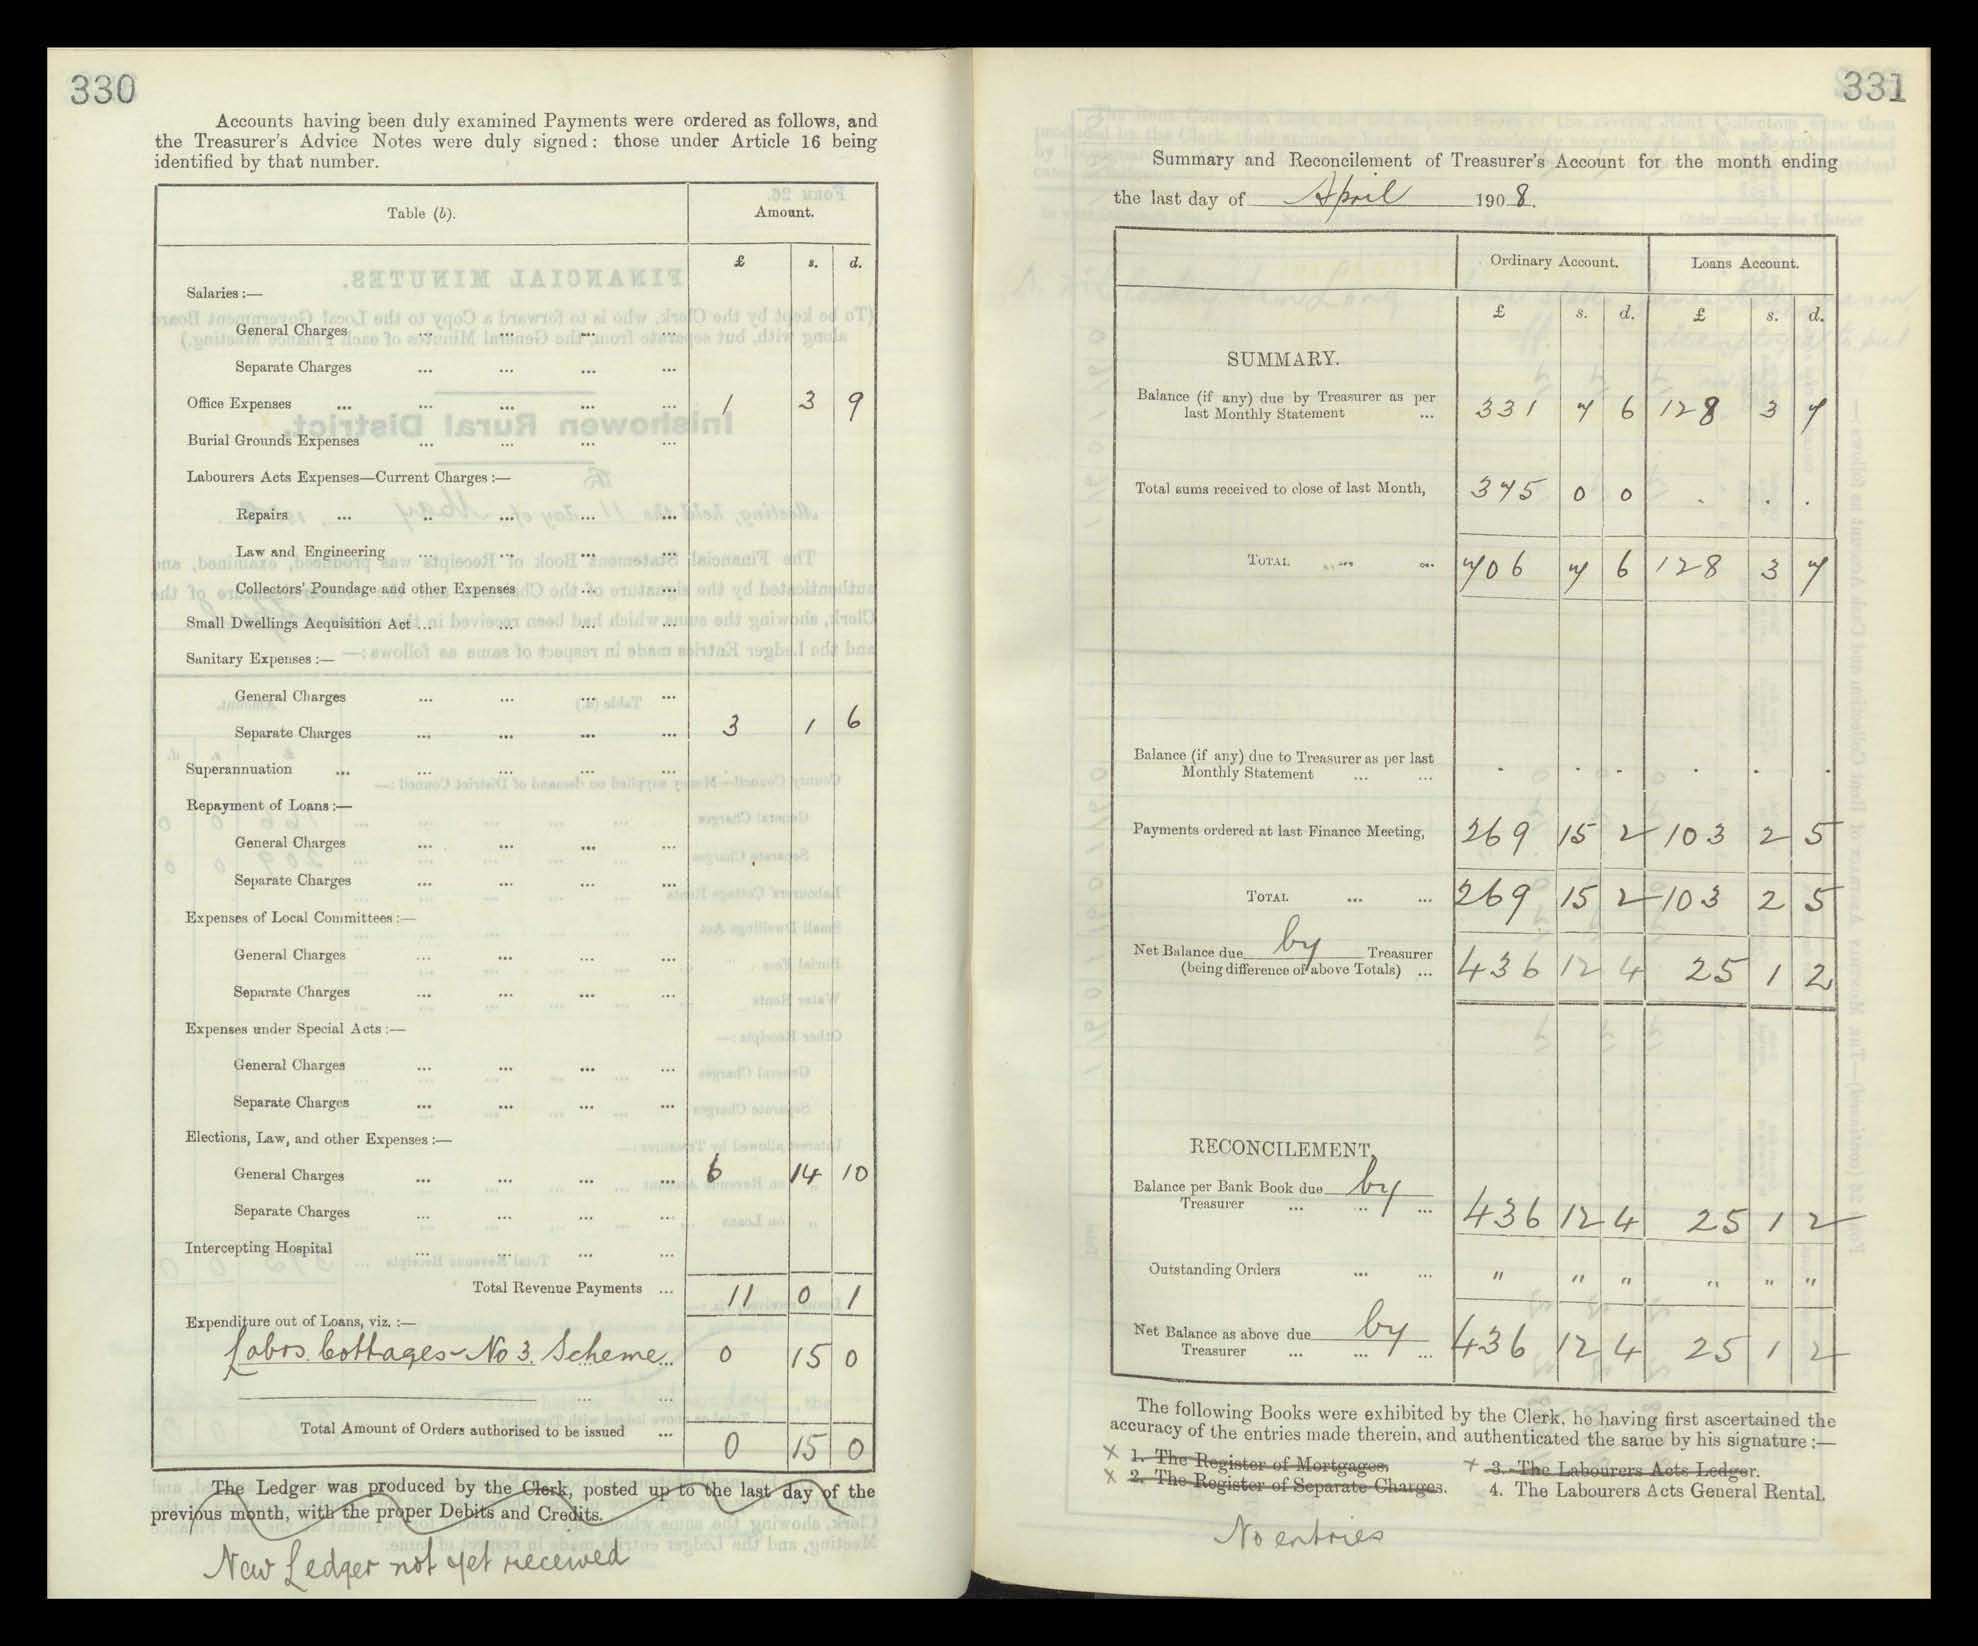 330
Accounts having been duly examined Payments were ordered as follows, and
the Treasurer's Advice Notes were duly signed: those under Article 16 being
identified by that number.
Table (b). Amount.
£ s. d.
Salaries:—
General Charges ... ... ... ...
Separate Charges ... ... ... ...
Office Expenses ... ... ... ... ... 1 3 9
Burial Grounds Expenses ... ... ... ...
Labourers Acts Expenses—Current Charges:—
Repairs ... ... ... ... ...
Law and Engineering ... ... ... ...
Collectors' Poundage and other Expenses ... ...
Small Dwellings Acquisition Act ... ... ... ...
Sanitary Expenses:—
General Charges ... ... ... ...
Separate Charges ... ... ... ... 3 1 6
Superannuation ... ... ... ... ...
Repayment of Loans:—
General Charges ... ... ... ...
Separate Charges ... ... ... ...
Expenses of Local Committees:—
General Charges ... ... ... ...
Separate Charges ... ... ... ...
Expenses under Special Acts:—
General Charges ... ... ... ...
Separate Charges ... ... ... ...
Elections, Law, and other Expenses:—
General Charges ... ... ... ... 6 14 10
Separate Charges ... ... ... ...
Intercepting Hospital ... ... ... ...
Total Revenue Payments ... 11 0 1
Expenditure out of Loans, viz.:—
Labrs. Cottages - No 3. Scheme ... 0 15 0
... ...
Total Amount of Orders authorised to be issued ... 0 15 0
The Ledger was produced by the Clerk, posted up to the last day of the
previous month, with the proper Debits and Credits.
New Ledger not yet received
331
Summary and Reconcilement of Treasurer's Account for the month ending
the last day of April 1908.
Ordinary Account. Loans Account.
£ s. d. £ s. d.
SUMMARY.
Balance (if any) due by Treasurer as per
last Monthly Statement ... 331 7 6 128 3 7
Total sums received to close of last Month, 375 0 0 . . .
TOTAL ... ... 706 7 6 128 3 7
Balance (if any) due to Treasurer as per last
Monthly Statement ... ... . . . . . .
Payments ordered at last Finance Meeting, 269 15 2 103 2 5
TOTAL ... ... 269 15 2 103 2 5
Net Balance due by Treasurer
(being difference of above Totals) ... 436 12 4 25 1 2
RECONCILEMENT.
Balance per Bank Book due by
Treasurer ... ... ... 436 12 4 25 1 2
Outstanding Orders ... ... " " " " " "
Net Balance as above due by
Treasurer ... ... ... 436 12 4 25 1 2
The following Books were exhibited by the Clerk, he having first ascertained the
accuracy of the entries made therein, and authenticated the same by his signature:—
x 1. The Register of Mortgages. x 3. The Labourers Acts Ledger.
x 2. The Register of Separate Charges. 4. The Labourers Acts General Rental.
No entries